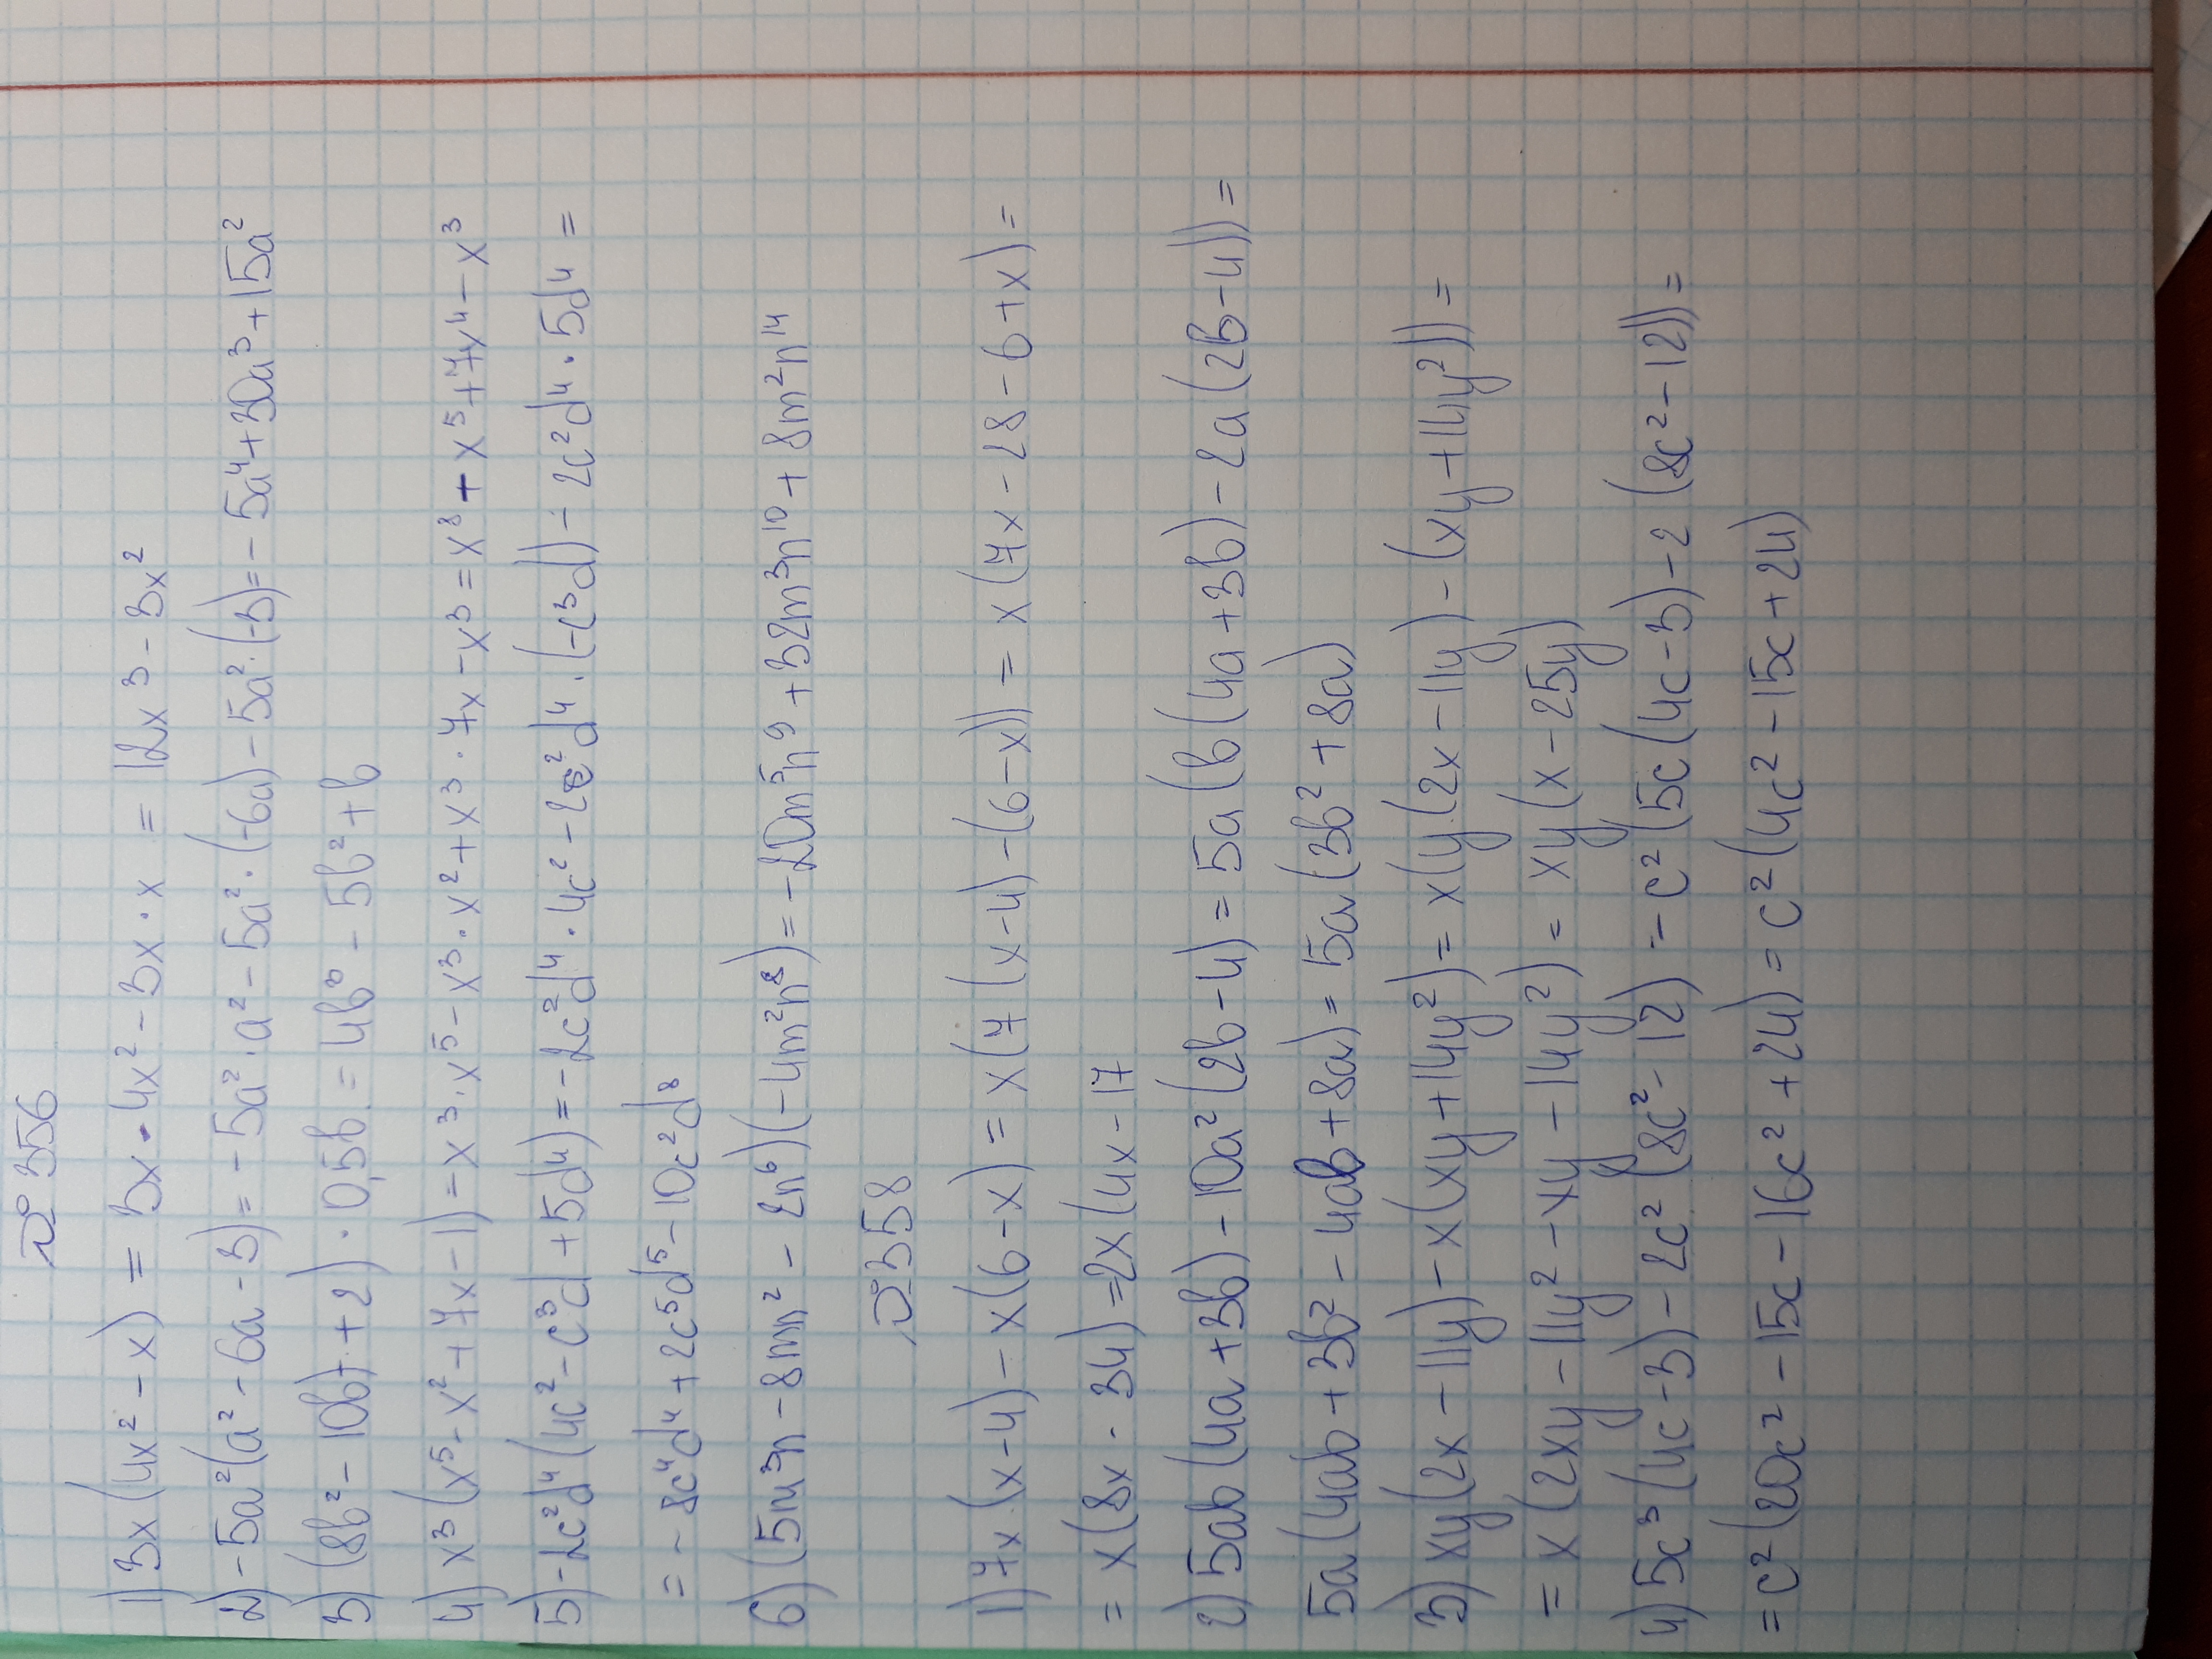 № 356
1) 3x(4x² - x) = 3x · 4x² - 3x · x = 12x³ - 3x²
2) -5a²(a² - 6a - 3) = -5a² · a² - 5a² · (-6a) - 5a² · (-3) = -5a⁴ + 30a³ + 15a²
3) (8b² - 10b + 2) · 0,5b = 4b³ - 5b² + b
4) x³(x⁵ - x² + 7x - 1) = x³ · x⁵ - x³ · x² + x³ · 7x - x³ = x⁸ - x⁵ + 7x⁴ - x³
5) -2c²d⁴(4c² - c³d + 5d⁴) = -2c²d⁴ · 4c² - 2c²d⁴ · (-c³d) - 2c²d⁴ · 5d⁴ =
= -8c⁴d⁴ + 2c⁵d⁵ - 10c²d⁸
6) (5m³n - 8mn² - 2n⁶)(-4m²n⁸) = -20m⁵n⁹ + 32m³n¹⁰ + 8m²n¹⁴
№ 358
1) 7x(x-4) - x(6-x) = x(7(x-4) - (6-x)) = x(7x - 28 - 6 + x) =
= x(8x - 34) = 2x(4x - 17
2) 5ab(4a + 3b) - 10a²(2b - 4) = 5a(b(4a + 3b) - 2a(2b - 4)) =
5a(4ab + 3b² - 4ab + 8a) = 5a(3b² + 8a)
3) xy(2x - 11y) - x(xy + 14y²) = x(y(2x - 11y) - (xy + 14y²)) =
= x(2xy - 11y² - xy - 14y²) = xy(x - 25y)
4) 5c³(4c - 3) - 2c²(8c² - 12) = c²(5c(4c - 3) - 2(8c² - 12)) =
= c²(20c² - 15c - 16c² + 24) = c²(4c² - 15c + 24)